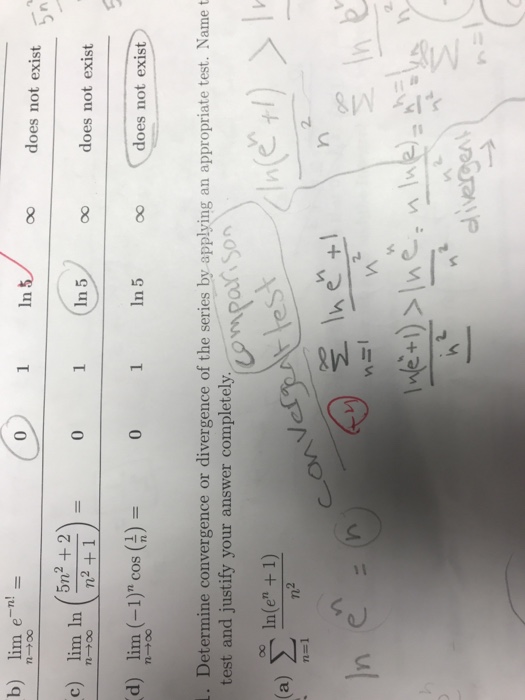 b) lim_{n→∞} e^{-n!} = 0 1 ln 5 ∞ does not exist
c) lim_{n→∞} ln ( (5n² + 2) / (n² + 1) ) = 0 1 ln 5 ∞ does not exist
d) lim_{n→∞} (−1)ⁿ cos (1/n) = 0 1 ln 5 ∞ does not exist
. Determine convergence or divergence of the series by applying an appropriate test. Name t
test and justify your answer completely.
comparison
test
(a) ∑_{n=1}^{∞} ln(eⁿ + 1) / n²
convergent
ln(eⁿ+1) / n² > ln
ln eⁿ = n
+4
∑_{n=1}^{∞} ln eⁿ+1 / n²
ln(eⁿ+1) / n² > ln eⁿ / n² = n ln(e) / n² = n / n²
divergent →
∑ n=1